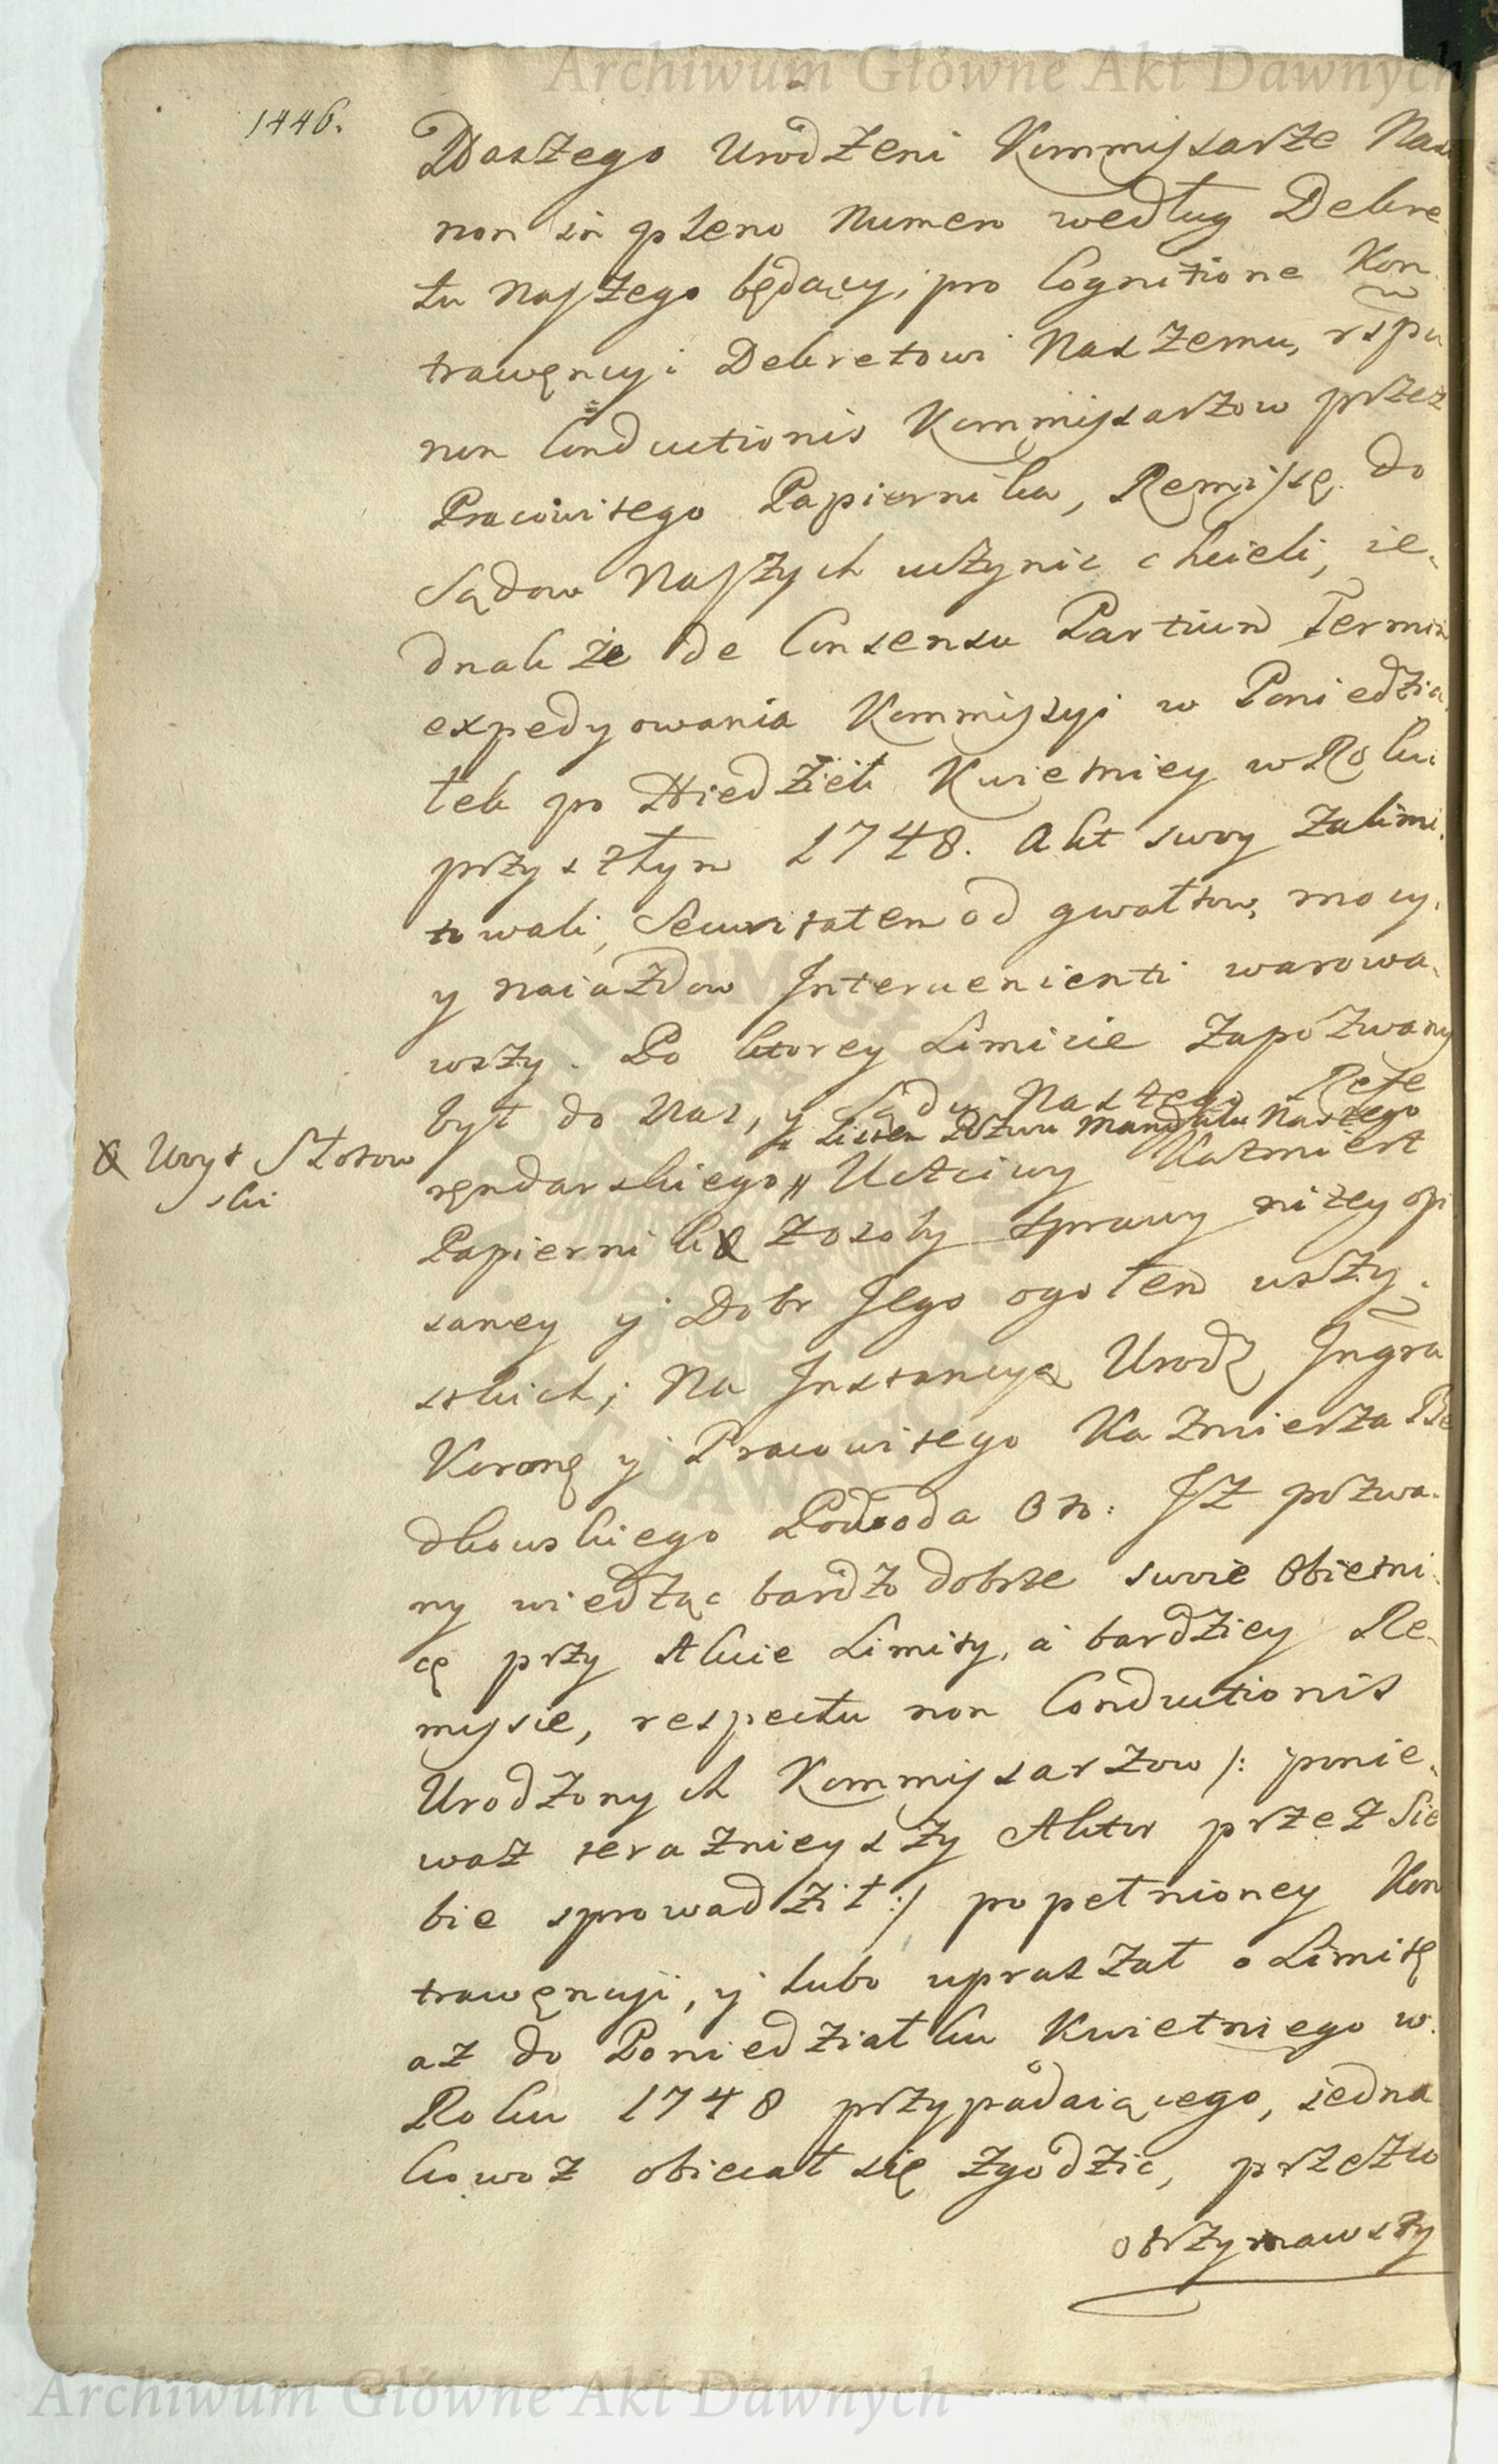 Archiwum Główne Akt Dawnych
1446.
Waszego Urodzeni Kommissarze Nasi
non in pleno Numero według Dekre
tu Naszego będący, pro Cognitione Kon
trawęncyi Dekretowi Naszemu, rspu
non Conductionis Kommissarzow przez
Pracowitego Papiernika, Remissę do
Sądow Naszych uczynic chcieli, ie,
dnak że de Consensu Partium Termin
expedyowania Kommissyi w Poniedzia
łek po Niedzieli Kwietniey w Roku
przyszłym 1748. Akt swoy zalimi,
towali, Securitatem od gwałtow, mocy,
y naiazdow Interuenienti warowa,
wszy. Po ktorey Limicie zapozwany
był do Nas, y Sądu Naszego Refe
z Liter Pozwu Mandatu Naszego
rendarskiego Uczciwy Kazmierz
Papiernik z osoby sprawy niżey opi
X Uryt Stosow
ski
saney y Dobr Jego ogołem wszy,
stkich; Na Instancyą Urodz, Ingra
Koronę y Pracowitego Kazmierza Be
dkowskiego Powoda Oto: Iż pozwa,
ny wiedząc bardzo dobrze swoie Obietni
cę przy Akcie Limity, a bardziey Re,
myssie, respectu non Conductionis
Urodzonych Kommissarzow /: ponie,
waż teraznieyszy Aktor przez Sie
bie sprowadził :/ popełnioney Kon
trawęncyi, y lubo upraszał o Limitę
aż do Poniedziałku Kwietniego w
Roku 1748 przypadaiącego, iedna
kowoż obiecał się zgodzić, przeszło
otrzymawszy
Archiwum Główne Akt Dawnych